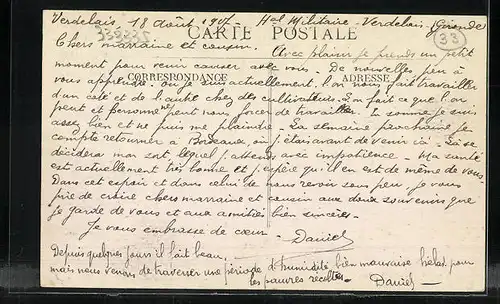 Verdelais 18 Août 1917 - Hal Militaire - Verdelais (Gironde)
338235
33
CARTE POSTALE
Chers marraine et cousin. Avec plaisir je prends un petit
moment pour venir causer avec vous. De nouvelles, peu à
CORRESPONDANCE
ADRESSE
vous apprendre. Où je suis actuellement, l'on nous fait travailler
d'un coté et de l'autre chez des cultivateurs. L'on fait ce que l'on
peut et personne peut nous forcer de travailler. En somme je suis
assez bien et ne puis me plaindre. La semaine prochaine je
compte retourner à Bordeaux, où j'étais avant de venir ici. Là se
décidera mon sort lequel j'attends avec impatience. Ma santé
est actuellement très bonne et j'espère qu'il en est de même de vous.
Dans cet espoir et dans celui de nous revoir sous peu je vous
prie de croire chers marraine et cousin aux doux souvenirs que
je garde de vous et aux amitiés bien sincères.
Je vous embrasse de cœur. Daniel
Depuis quelques jours il fait beau,
mais nous venons de traverser une période d'humidité bien mauvaise hélas pour
les pauvres récoltes. Daniel